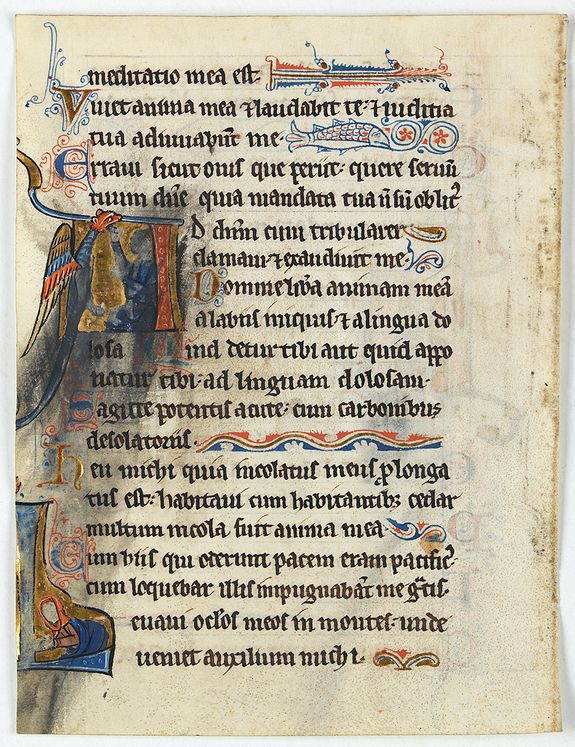 meditatio mea est.
Viuet anima mea ⁊ laudabit te: ⁊ iudicia
tua adiuuabūt me.
Erraui sicut ouis que periit: quere seruū
tuum dn̄e quia mandata tua nō sū oblit᷒
AD dn̄m cum tribularer
clamaui ⁊ exaudiuit me.
Domine libˀa animam meā
a labiis iniquis ⁊ a lingua do
losa. Quid detur tibi aut quid appo
natur tibi: ad linguam dolosam.
Sagitte potentis acute: cum carbonibus
desolatoriis.
Heu michi quia incolatus meus ꝓlonga
tus est: habitaui cum habitantibꝫ cedar
multum incola fuit anima mea
Cum hiis qui oderunt pacem eram pacific᷒
cum loquebar illis impugnabāt me gͣtis.
Leuaui oclōs meos in montes: unde
ueniet auxilium michi.